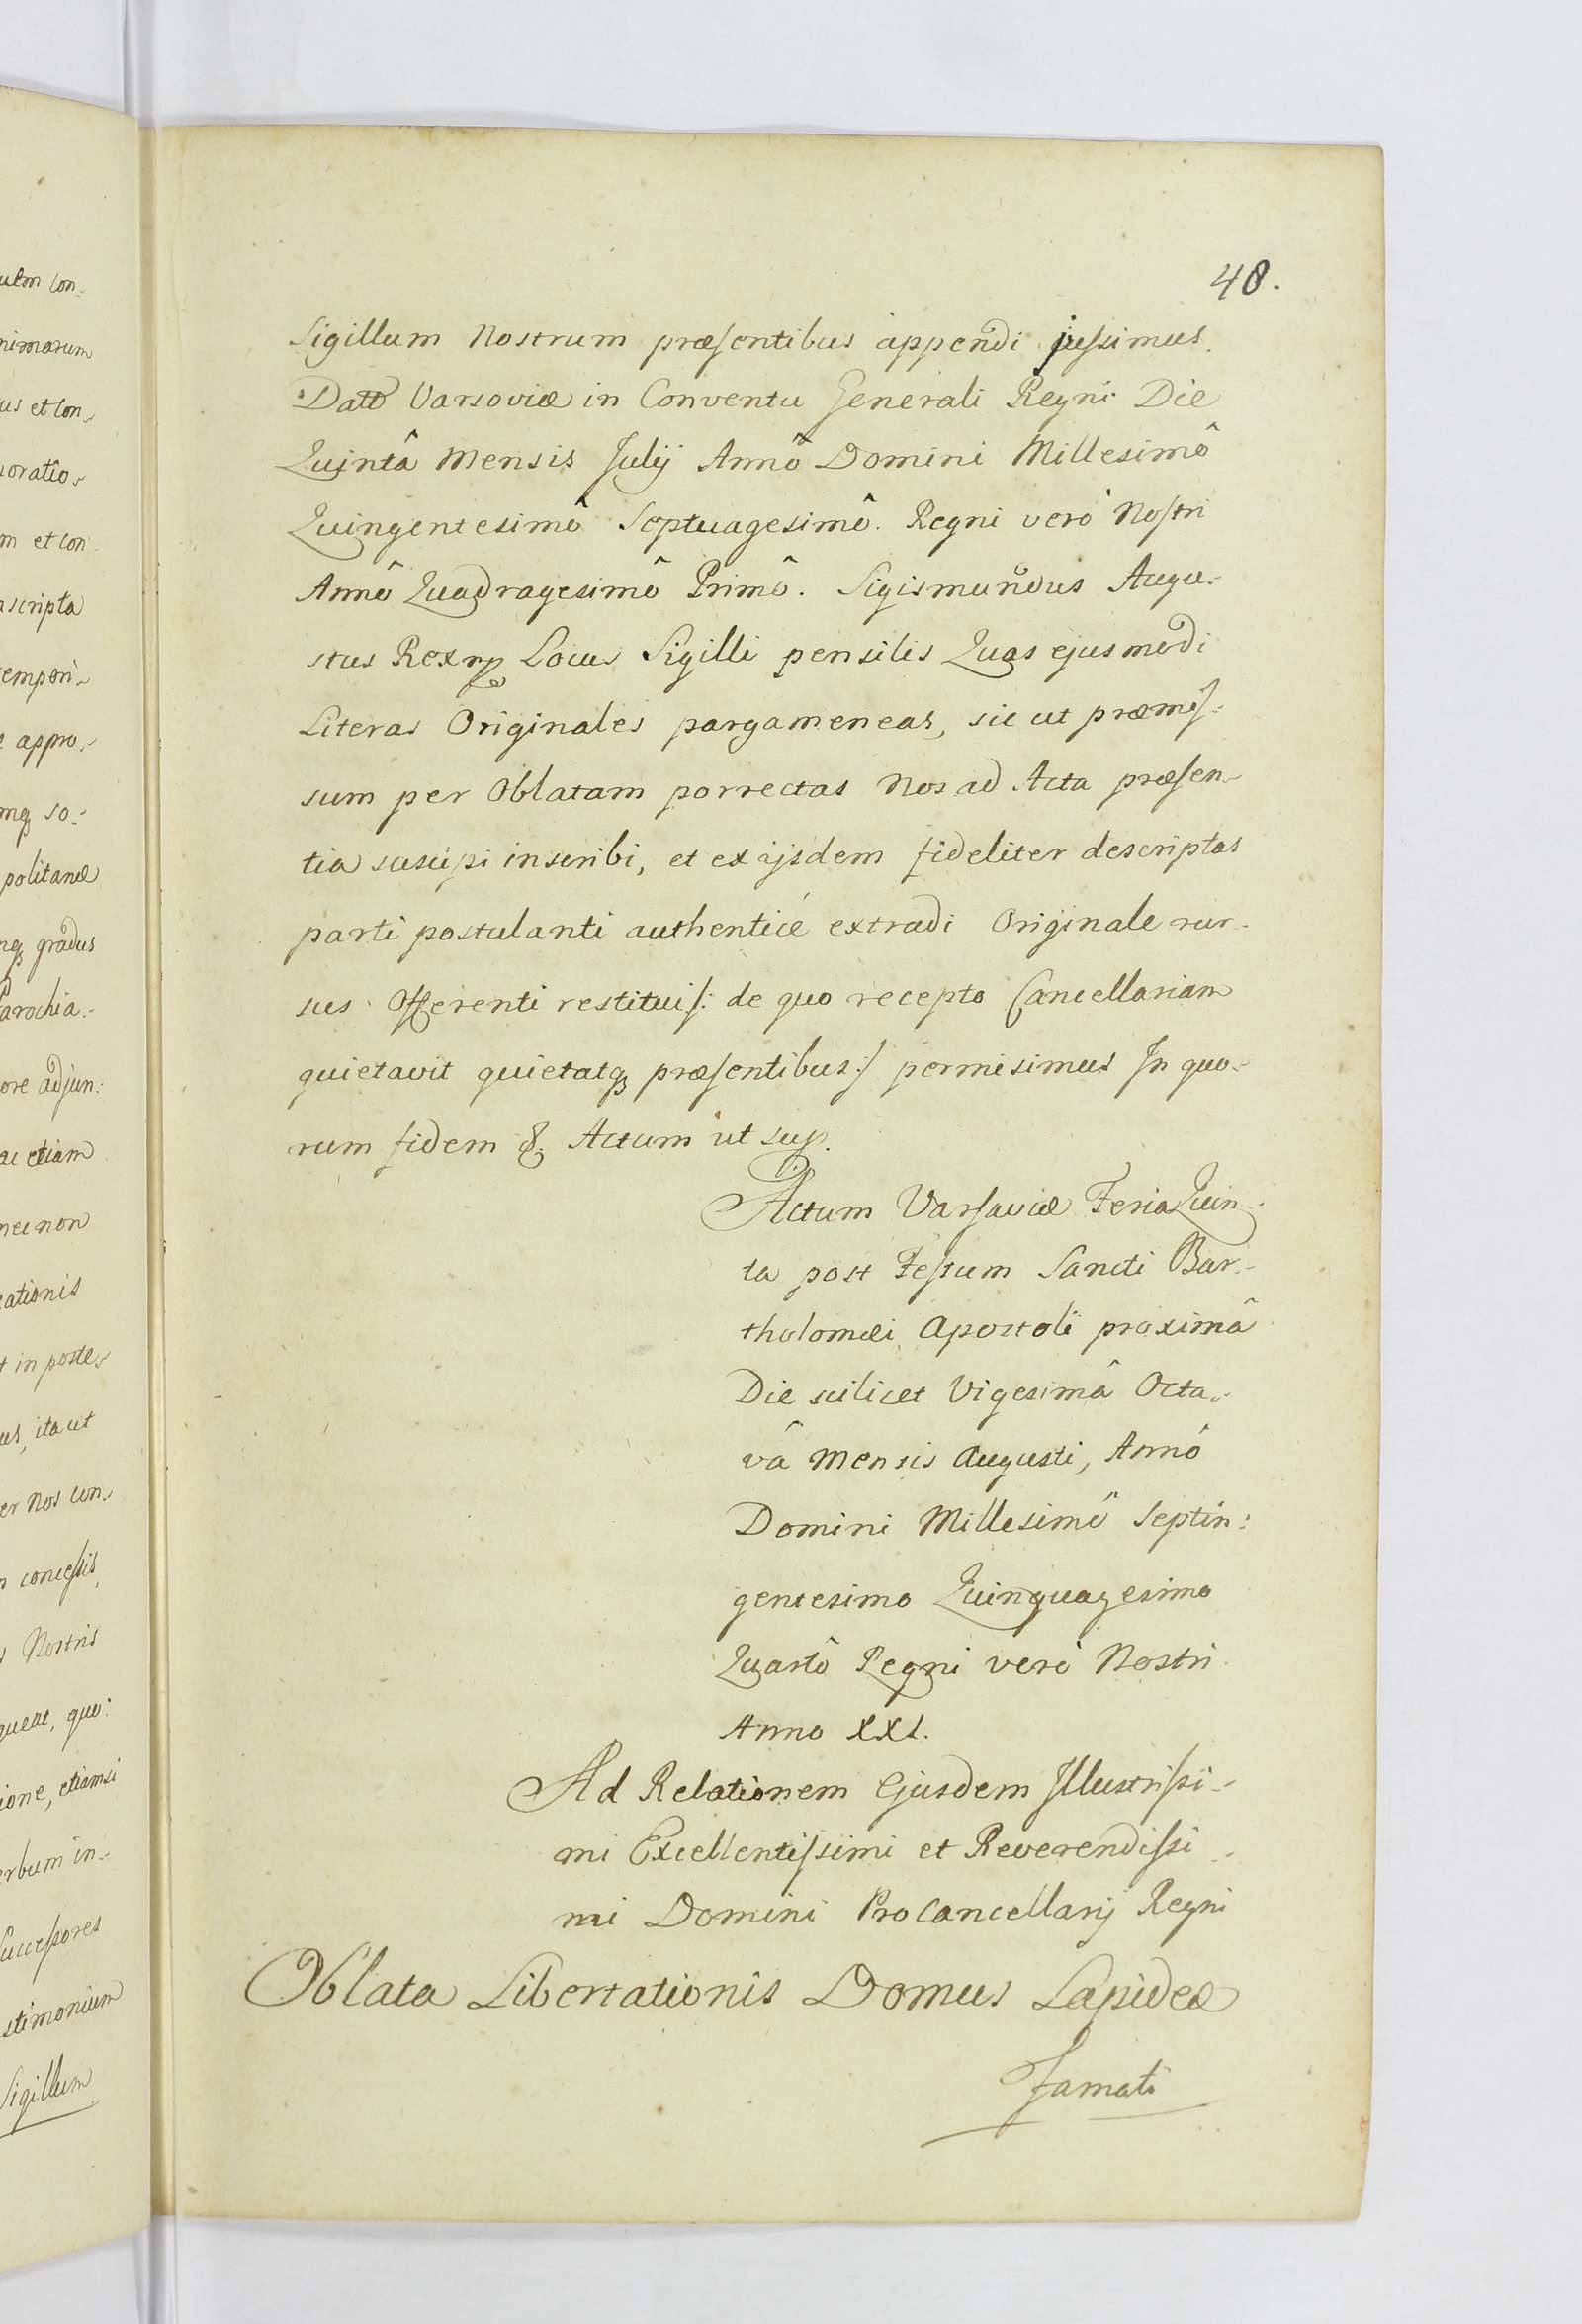 48.
Sigillum Nostrum præsentibus appendi jussimus.
Datt Varsoviæ in Conventu Generali Regni Die
Quintâ Mensis Julij Annô Domini Millesimô
Quingentesimô Septuagesimô. Regni verò Nostri
Annô Quadragesimô Primô. Sigismundus Augu-
stus Rex Locus Sigilli pensilis Quas ejusmodi
Literas Originales pargameneas, sic ut præmis:
sum per Oblatam porrectas Nos ad Acta præsen-
tia suscipi inscribi, et ex ijsdem fideliter descriptas
parti postulanti authenticé extradi Originale rur-
sus Offerenti restitui /: de quo recepto Cancellariam
quietavit quietatq præsentibus :/ permisimus In quo-
rum fidem &. Actum ut sup.
Actum Varsaviæ Feria Quin-
ta post Festum Sancti Bar-
tholomæi Apostoli proximâ
Die scilicet Vigesimâ Octa-
vâ Mensis Augusti, Annô
Domini Millesimô Septin:
gentesimo Quinquagesimo
Quartô Regni verò Nostri
Anno XXI.
Ad Relationem Ejusdem Illustrissi-
mi Excellentissimi et Reverendissi-
mi Domini ProCancellarij Regni
Oblata Libertationis Domus Lapideæ
Famati
uem con-
nimarum
us et con-
oratio-
m et con
scripta
empori-
e appro-
mq so-
politanæ
nq gradus
Parochia-
ore adjun:
ac etiam
nec non
cationis
t in poste-
us, ita ut
er Nos con-
n concessis,
s Nostris
queat, quo:
ione, etiamsi
erbum in-
Successores
stimonium
Sigillum